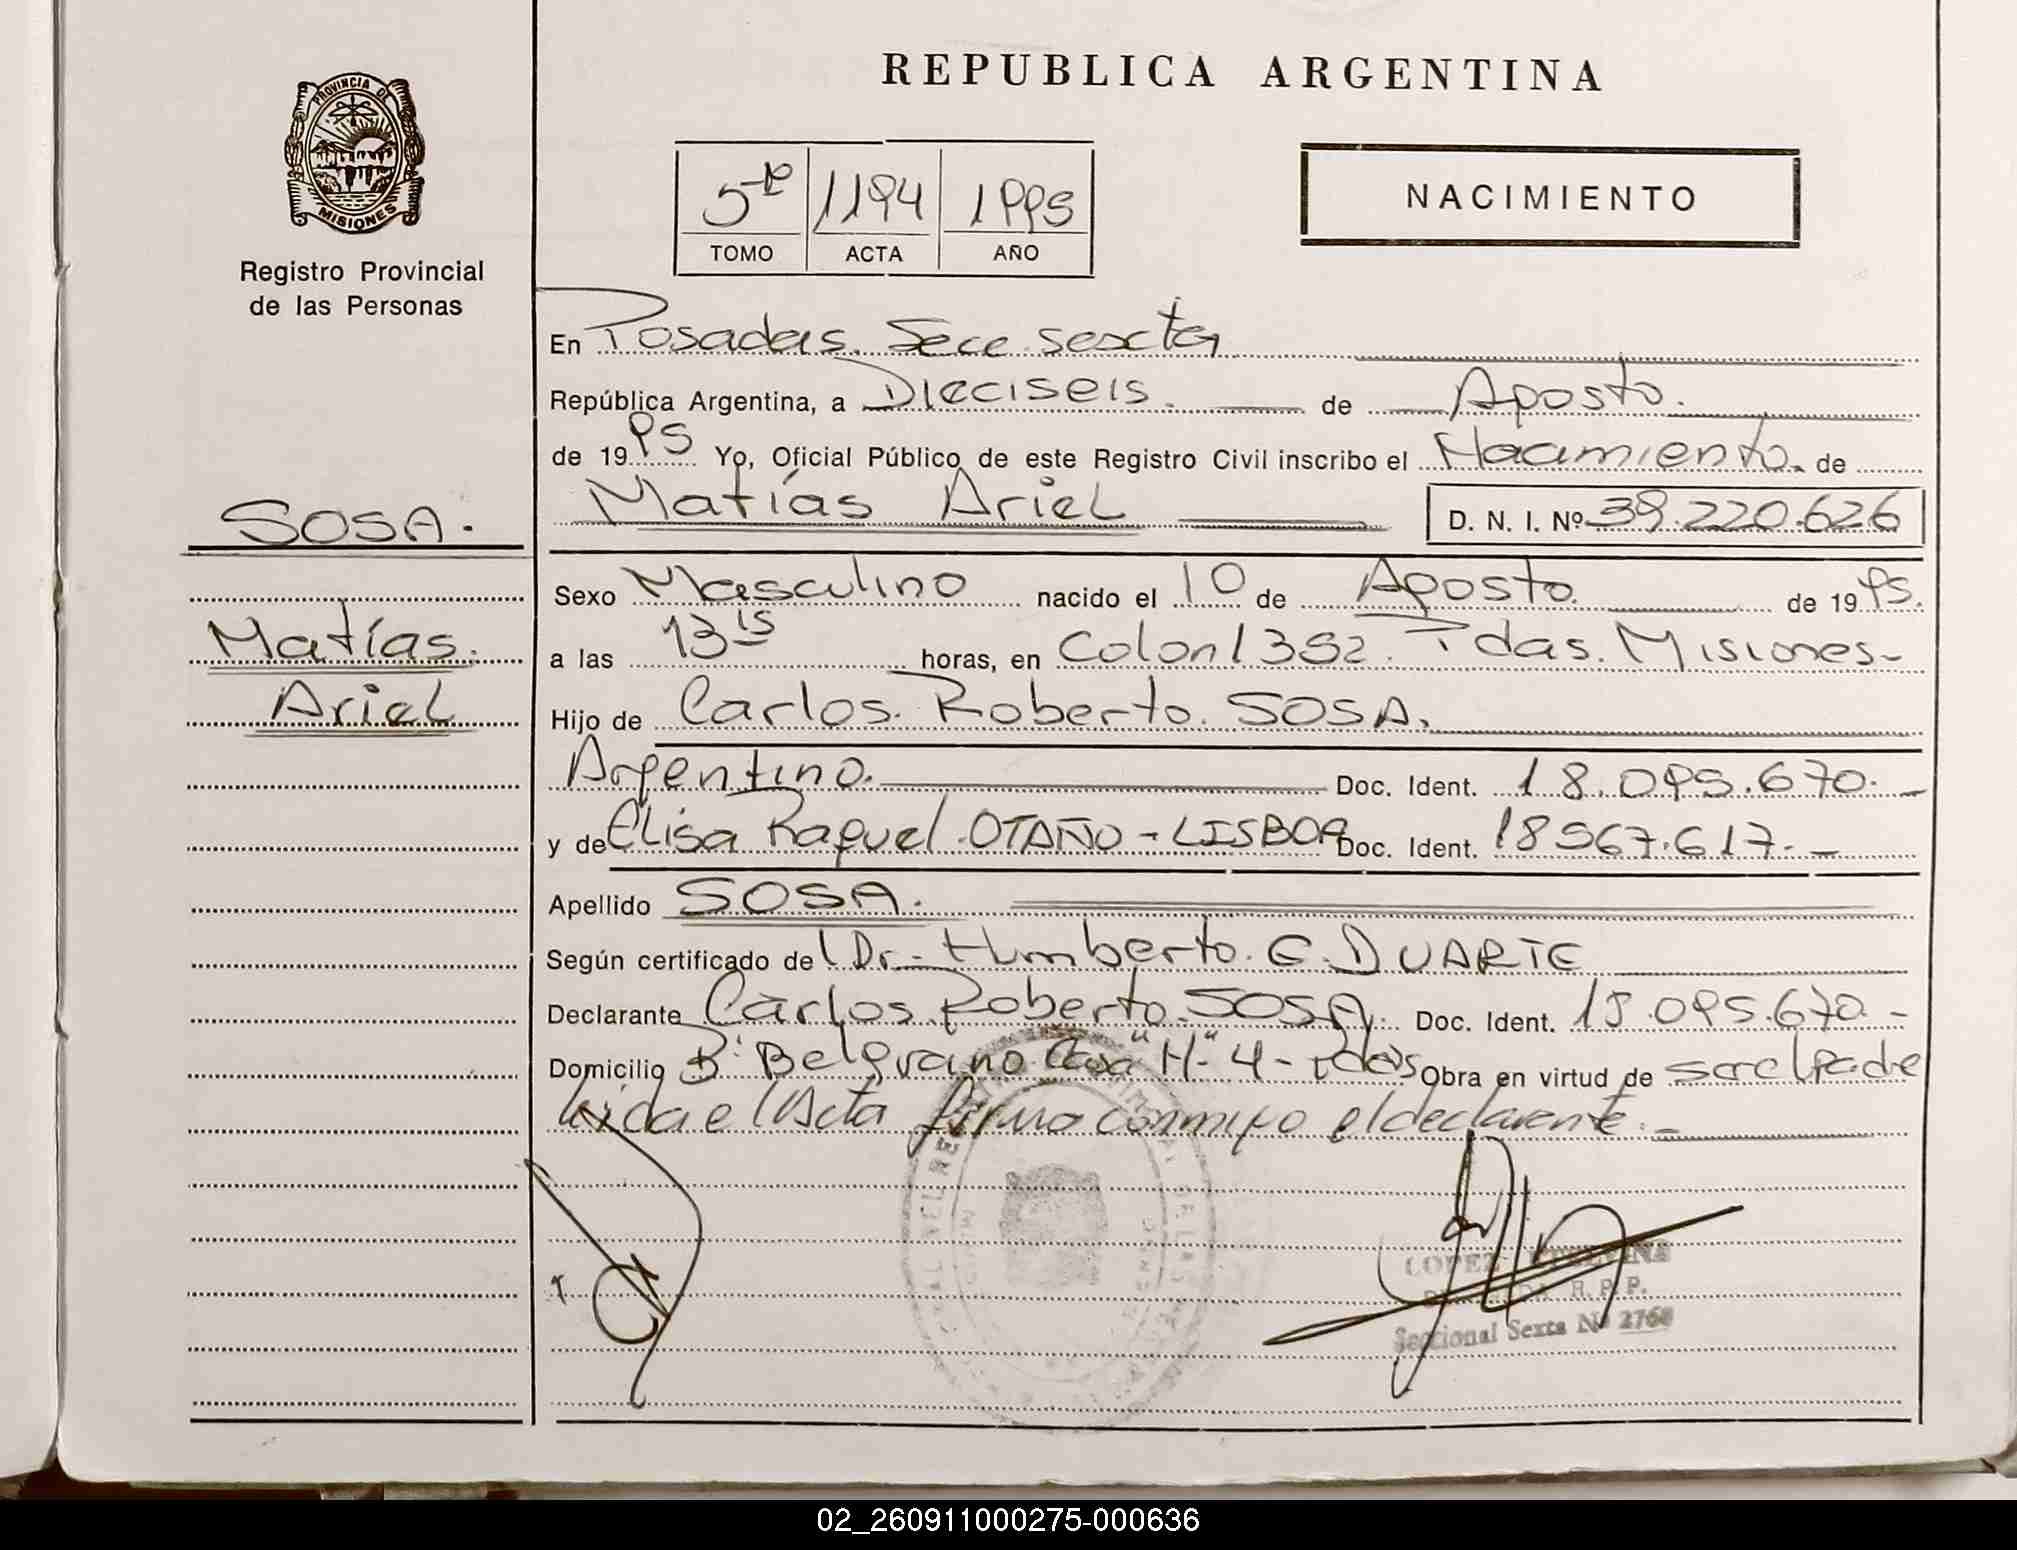 REPUBLICA ARGENTINA
PROVINCIA DE
MISIONES
Registro Provincial
de las Personas
5to 1194 1995
TOMO ACTA AÑO
NACIMIENTO
En Posadas. Secc sexta
República Argentina, a Dieciseis. de Agosto.
de 1995 Yo, Oficial Público de este Registro Civil inscribo el Nacimiento. de
SOSA.
Matías Ariel D. N. I. Nº 39.220.626
Sexo Masculino nacido el 10 de Agosto de 1995.
Matías.
a las 13 15 horas, en Colon 1392. Pdas. Misiones-
Ariel
Hijo de Carlos Roberto. SOSA.
Argentino. Doc. Ident. 18.095.670.-
y de Elisa Raquel OTAÑO - LISBOA Doc. Ident. 18 967.617.-
Apellido SOSA.
Según certificado de Dr.- Humberto. G. DUARTE
Declarante Carlos Roberto SOSA. Doc. Ident. 18.095.670.-
Domicilio Bº Belgrano Casa "H" 4 - Pdas Obra en virtud de ser el padre
Leida el Acta firma conmigo el declarante.-
LOPEZ
R. P. P.
Seccional Sexta Nº 2768
02_260911000275-000636